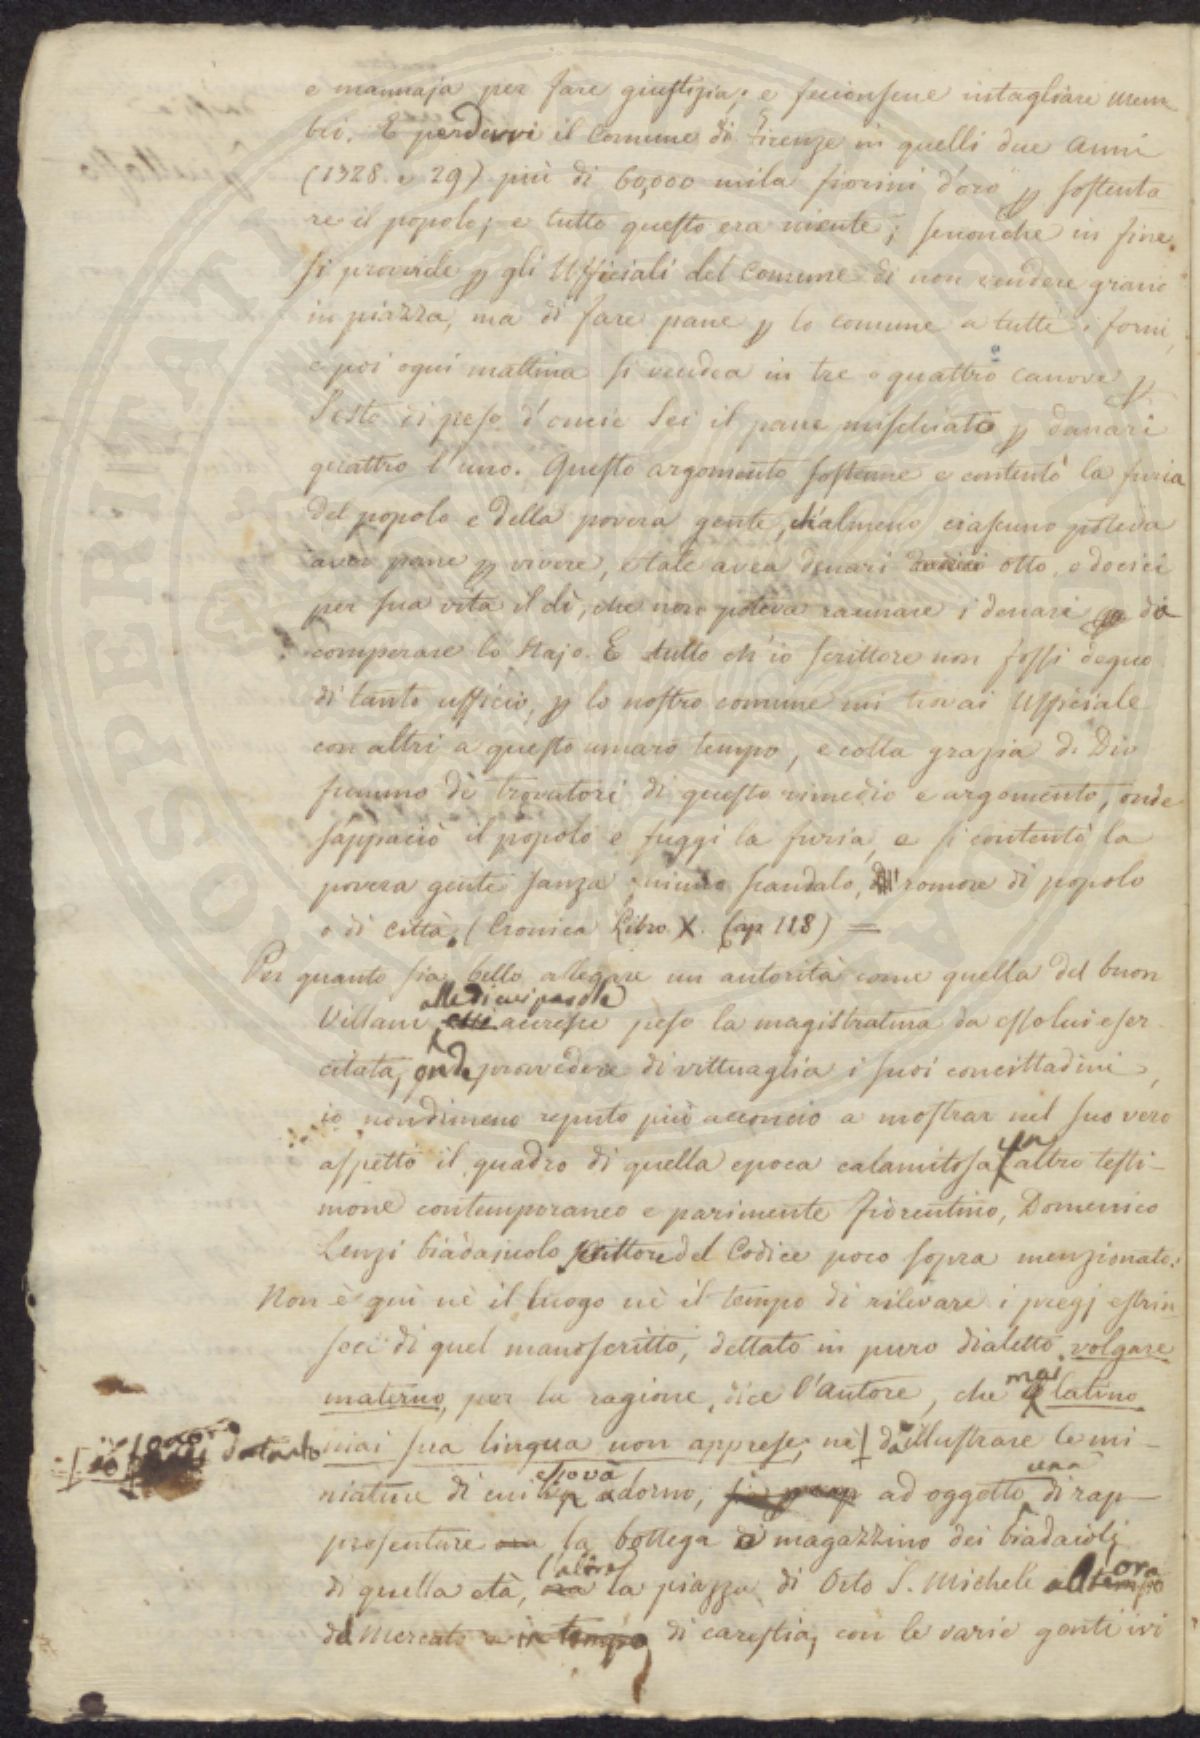 e mannaja per fare giustizia; e fecionsene intagliare mem
bri. E perdervi il Comune di Firenze in quelli due anni
(1328. e 29) più di 60,000 mila fiorini d'oro p sostenta
re il popolo; e tutto questo era niente; senonche in fine
si provvide p gli Ufficiali del Comune di non vendere grano
in piazza, ma di fare pane p lo comune a tutti i forni,
e poi ogni mattina si vendea in tre o quattro canove p
Sesto di peso d'oncie sei il pane mischiato p danari
quattro l'uno. Questo argomento sostenne e contentò la furia
del popolo e della povera gente, ch'almeno ciascuno poteva
aver pane p vivere, e tale avea denari otto, o dodici
per sua vita il dì, che non poteva raunare i denari di
comperare lo stajo. E tutto ch'io scrittore non fossi degno
di tanto ufficio, p lo nostro comune mi trovai Ufficiale
con altri a questo amaro tempo, e colla grazia di Dio
fummo de' trovatori di questo rimedio e argomento, onde
s'appaciò il popolo e fuggi la furia, e si contentò la
povera gente sanza niuno scandalo, romore di popolo
o di città. (Cronica Libro X. Cap 118) =
Per quanto sia bello allegare un autorità come quella del buon
alle di cui parole
Villani accresce peso la magistratura da essolui eser-
citata, onde provvedere di vittuaglia i suoi concittadini,
io nondimeno reputo più acconcio a mostrar nel suo vero
un
aspetto il quadro di quella epoca calamitosa altro testi-
mone contemporaneo e parimente fiorentino, Domenico
Lenzi biadajuolo scrittore del Codice poco sopra menzionato.
Non è quì nè il luogo nè il tempo di rilevare i pregj estrin
seci di quel manoscritto, dettato in puro dialetto volgare
mai
materno, per la ragione, dice l'autore, che latino
mai sua lingua non apprese; nè d'illustrare le mi-
datanto
si trova una
niature di cui adorno, ad oggetto di rap-
presentare la bottega o magazzino dei biadaioli
l'altra ora
di quella età, la piazza di Orto S. Michele
del Mercato di carestia, con le varie genti ivi